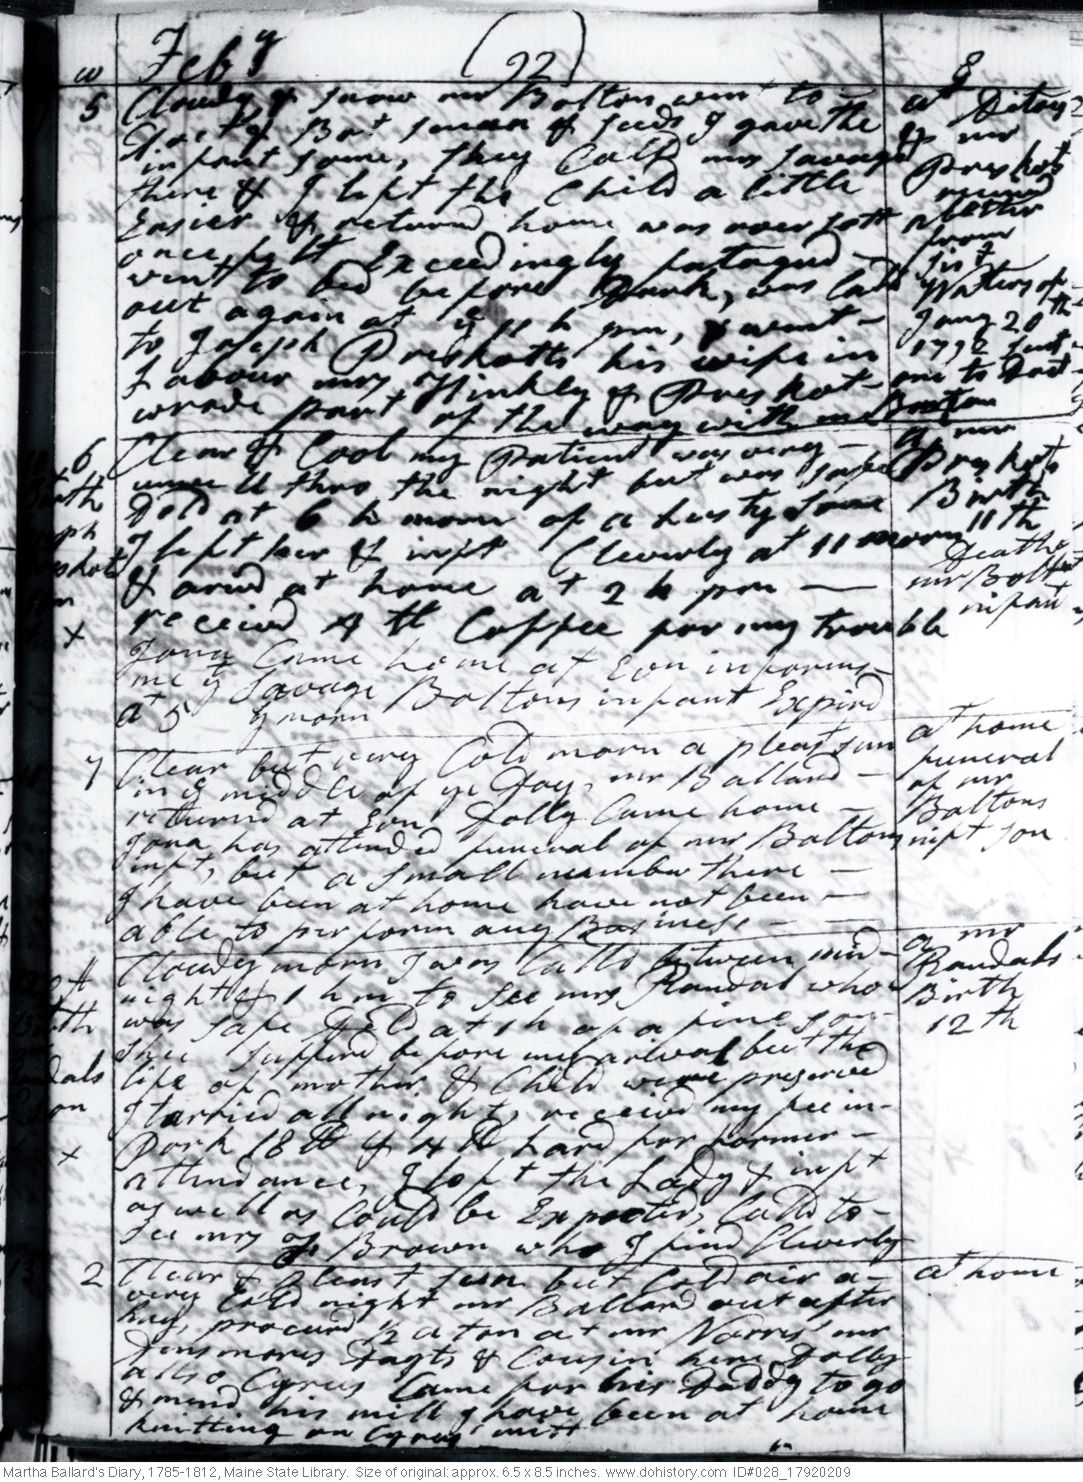 Feby (92)
w
5
Cloudy & snow mr Bolton went to
gave the
infant some, they Calld mrs Savage
there & I left the Child a little
Easier & returnd home was
once felt Exceedingly fatagud
went to bed before Dark, was Calld
out again at ye 11 h pm, & went
to Joseph Preskotts his wife in
Labour mrs Hinkly & Preskot
wrode part of the way with me
at
& mr
Preskots
receivd
a Letter
from
Waters of
Jany 20th
1792
6
Clear & Cool my Patient was very
unwell thro the night but was safe
Dld at 6 h morn of a hasty
I left her & inft Cleverly at 11 morn
& arivd at home at 2 h pm
received 4 lb Coffee for my trouble
Jona Came home at Evn informs
me yt Savage Boltons infant Expird
at 5 ye morn
at mr
Preskots
Birth
11th
Death
mr Boltons
infant
x
7
Clear but very Cold morn a pleast sun
in ye middle of ye Day, mr Ballard
returnd at Evn Dolly Came home
Jona has attended funeral of mr Boltons
inft, but a small number there
I have been at home have not been
able to perform any Business
at home
funeral
of mr
Boltons
inft son
Cloudy morn I was Calld between mid
night & 1 hm to see mrs Randal who
was safe Dld at 1 h of a fine son
shee sufferd before my arival but the
life of mother & Child were preserved
I tarried all night, received my fee in
Pork 18 lb & 4 lb Lard for former
attendance, I left the Lady & inft
as well as Could be Expected, Calld to
see mrs Brown who I find Cleverly
at mr
Randals
Birth
12th
x
2
Clear & pleast sun but Cold air a
very Cold night mr Ballard out after
hay, procured 1/2 a ton at mr Norris' mr
Densmores Dagts & Cousin here Dolly
allso Cyrus Came for his Daddy to go
& mend his mill I have been at home
knitting on Cyrus' mitt
at home
Martha Ballard's Diary, 1785-1812, Maine State Library. Size of original: approx. 6.5 x 8.5 inches. www.dohistory.com ID#028_17920209